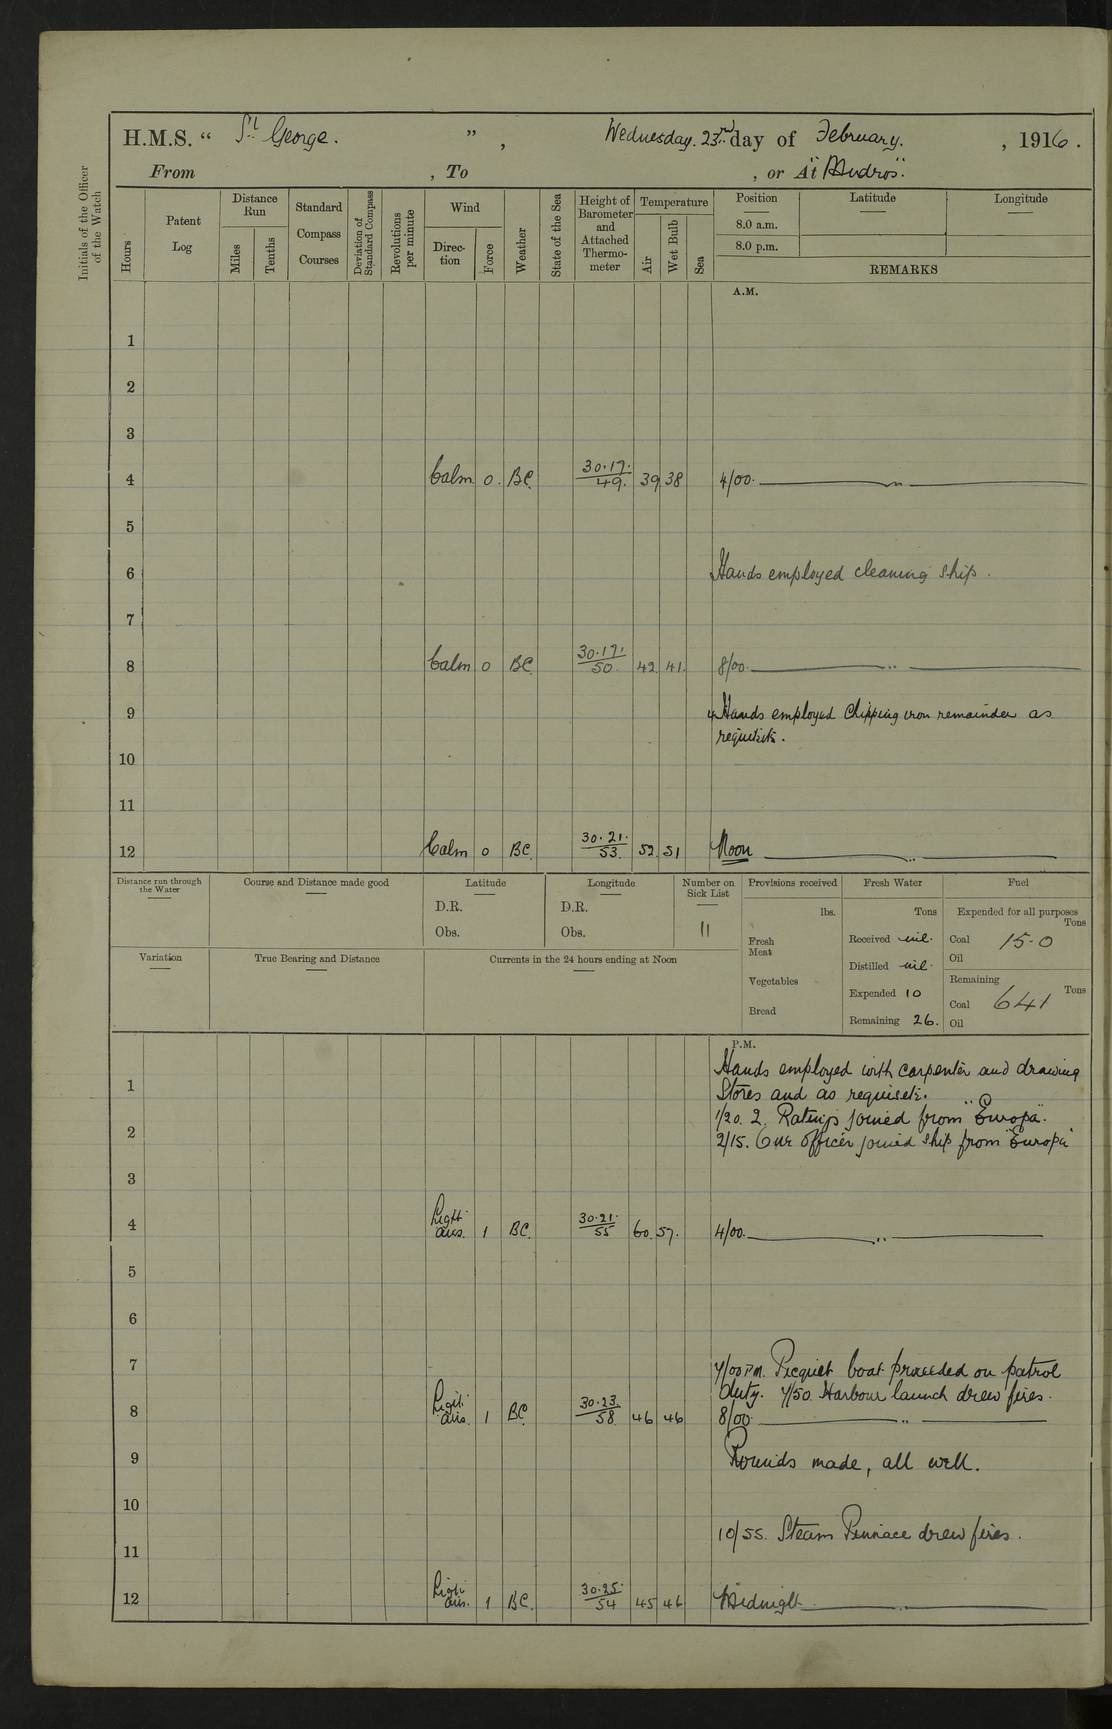 H.M.S. “ St. George. ”, Wednesday. 23rd day of February. , 1916.
From , To , or At "Mudros".
Initials of the Officer of the Watch
Hours
Patent Log
Distance Run
Miles
Tenths
Standard Compass Courses
Deviation of Standard Compass
Revolutions per minute
Wind
Direc-tion
Force
Weather
State of the Sea
Height of Barometer and Attached Thermo-meter
Temperature
Air
Wet Bulb
Sea
Position
8.0 a.m.
8.0 p.m.
Latitude
Longitude
REMARKS
A.M.
1
2
3
4 Calm 0. BC. 30.17. 49. 39 38 4/00. "
5
6 Hands employed cleaning ship.
7
8 Calm 0 BC. 30.17. 50. 42. 41. 8/00. "
9 4 Hands employed Chipping iron remainder as
requisite.
10
11
12 Calm 0 BC. 30.21. 53. 52. 51 Noon "
Distance run through the Water
Course and Distance made good
Latitude
D.R.
Obs.
Longitude
D.R.
Obs.
Number on Sick List
11
Provisions received
lbs.
Fresh Meat
Vegetables
Bread
Fresh Water
Tons
Received nil.
Distilled nil.
Expended 10
Remaining 26.
Fuel
Expended for all purposes
Tons
Coal 15.0
Oil
Remaining
Tons
Coal 641
Oil
Variation
True Bearing and Distance
Currents in the 24 hours ending at Noon
P.M.
Hands employed with carpenter and drawing
1
Stores and as requisite.
1/20. 2. Ratings joined from "Europa".
2 2/15. One officer joined ship from "Europa"
3
4 Light airs. 1 BC. 30.21. 55 60. 57. 4/00. "
5
6
7 7/00 P.M. Picquet boat proceeded on patrol
duty. 7/50 Harbour launch drew fires.
8 Light airs. 1 BC. 30.23. 58. 46 46 8/00. "
9 Rounds made, all well.
10
10/55. Steam Pinnace drew fires.
11
12 Light airs. 1 BC. 30.25. 54 45 46 Midnight